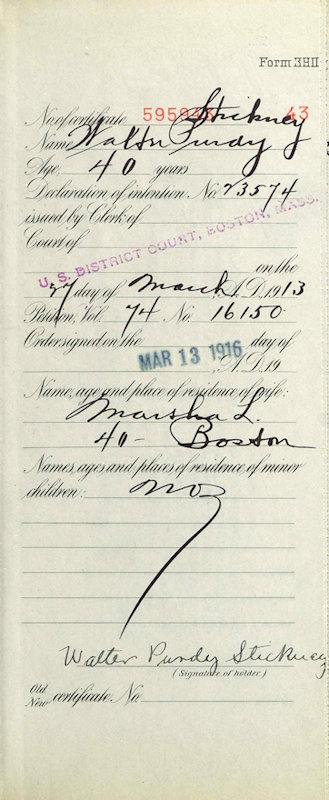 Form 3HII
No. of certificate 595943
Stickney
Name Walter Purdy
Age, 40 years
Declaration of intention No. 23574
issued by Clerk of
Court of
U. S. DISTRICT COURT, BOSTON, MASS.
on the
27 day of March, A.D. 1913
Petition, Vol. 74 No. 16150
Order signed on the day of
MAR 13 1916, A.D. 19
Name, age and place of residence of wife:
Marsha L.
40 - Boston
Names, ages and places of residence of minor
children: no
Walter Purdy Stickney
(Signature of holder)
Old
New certificate No.